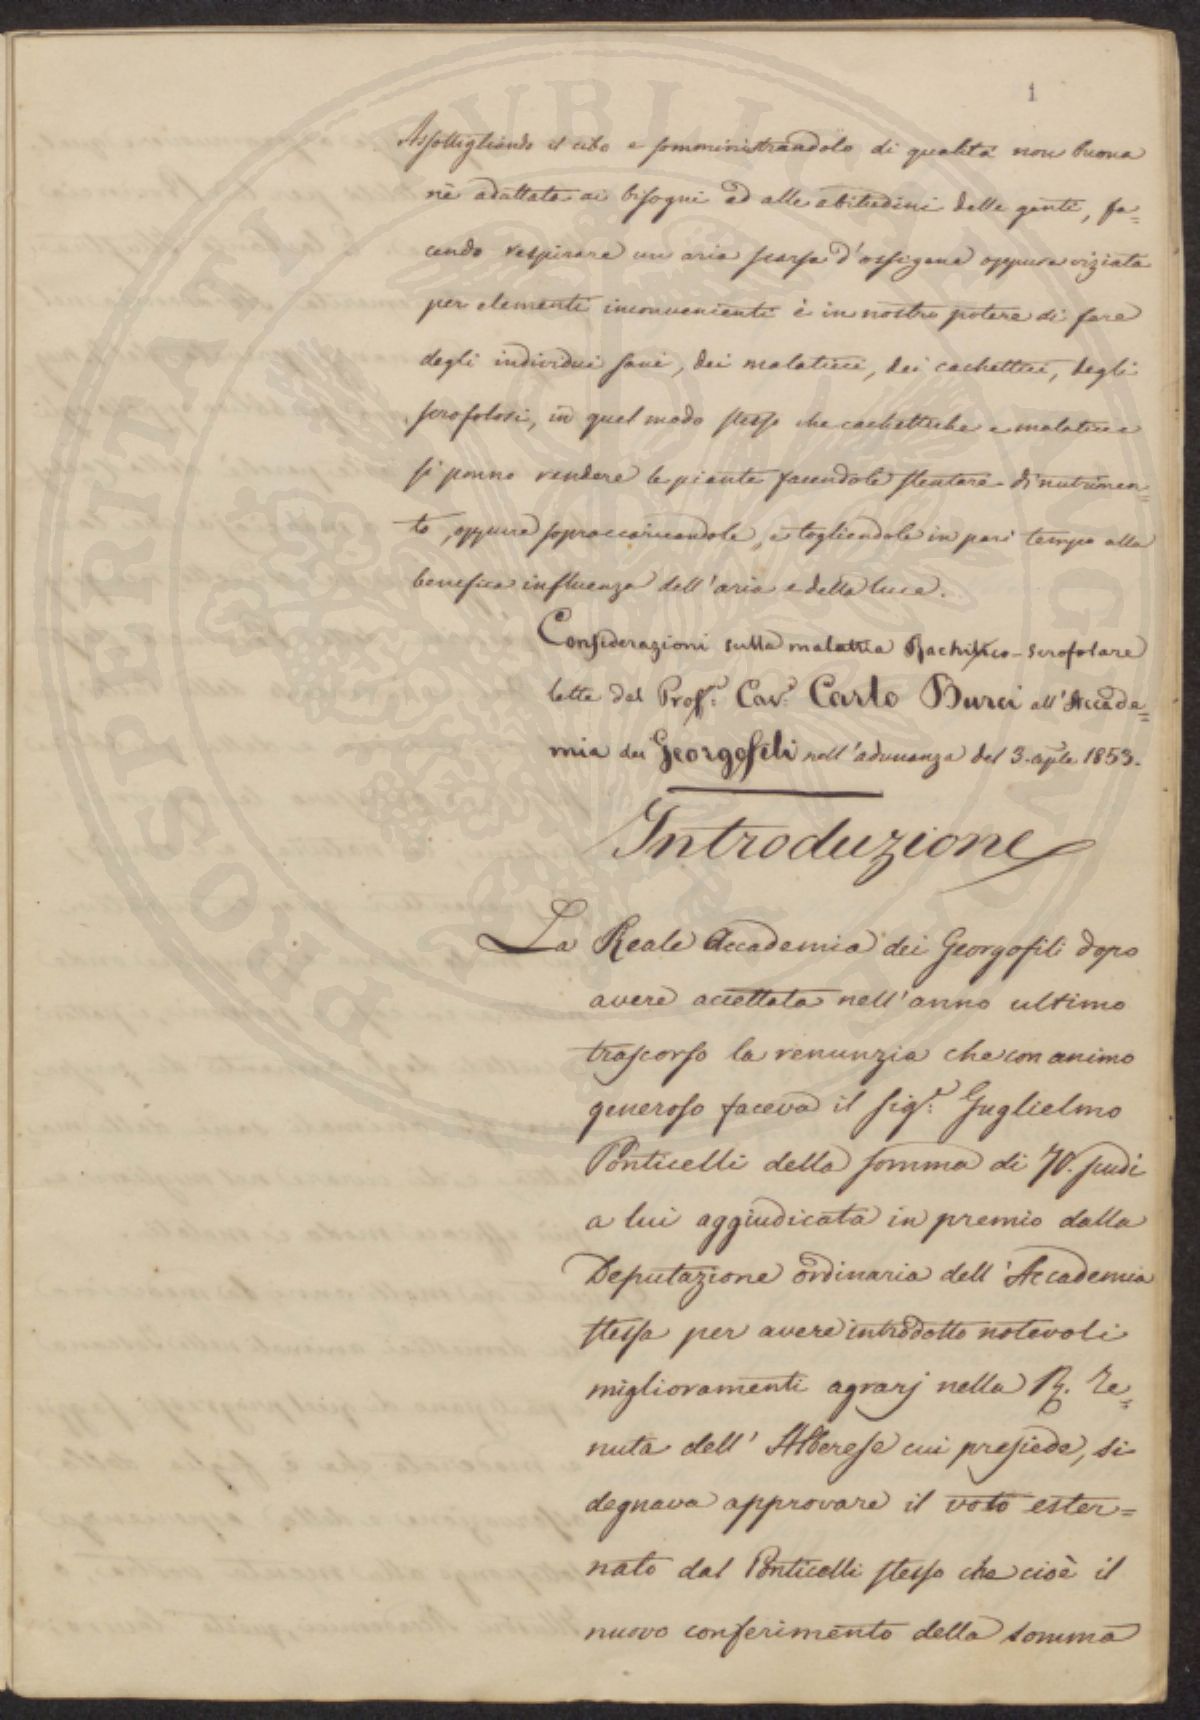 1
Assottigliando il cibo e somministrandolo di qualità non buona
nè adattata ai bisogni ed alle abitudini delle genti, fa=
cendo respirare un aria scarsa d'ossigene oppure viziata
per elementi inconvenienti è in nostro potere di fare
degli individui sani, dei malaticci, dei cachettici, degli
scrofolosi, in quel modo stesso che cachettiche e malaticce
si ponno rendere le piante facendole stentare di nutrimen=
to, oppure sopraccaricandole, e togliendole in pari tempo alla
benefica influenza dell'aria e della luce.
Considerazioni sulla malattia Rachitico-scrofolare
lette dal Prof.r Cav.r Carlo Burci all'Accade=
mia dei Georgofili nell'adunanza del 3. aple 1853.
Introduzione
La Reale Accademia dei Georgofili dopo
avere accettata nell'anno ultimo
trascorso la renunzia che con animo
generoso faceva il Sig.r Guglielmo
Ponticelli della somma di 70. scudi
a lui aggiudicata in premio dalla
Deputazione ordinaria dell'Accademia
stessa per avere introdotto notevoli
miglioramenti agrarj nella R. Te=
nuta dell'Alberese cui presiede, si
degnava approvare il voto ester=
nato dal Ponticelli stesso che cioè il
nuovo conferimento della somma
PROSPERITATI PUBLICAE AUGENDAE